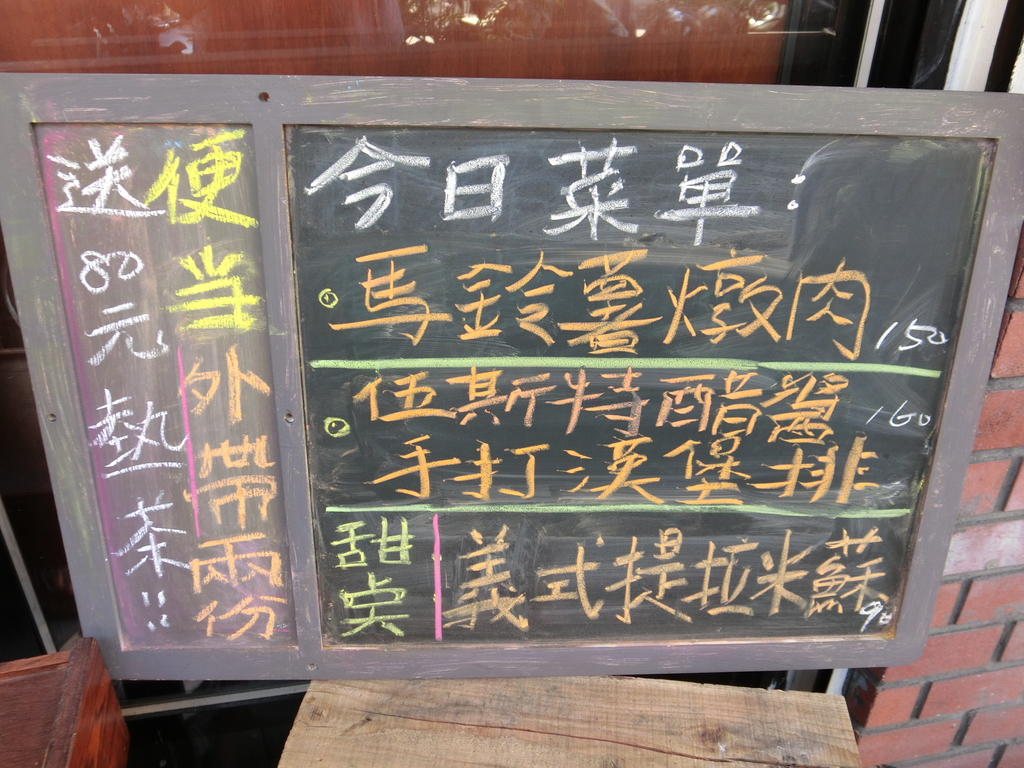 今日菜單:
馬鈴薯燉肉 150
伍斯特醋醬 160
手打漢堡排
甜点
義式提拉米蘇 90
便当外帶兩份
送80元熱茶!!